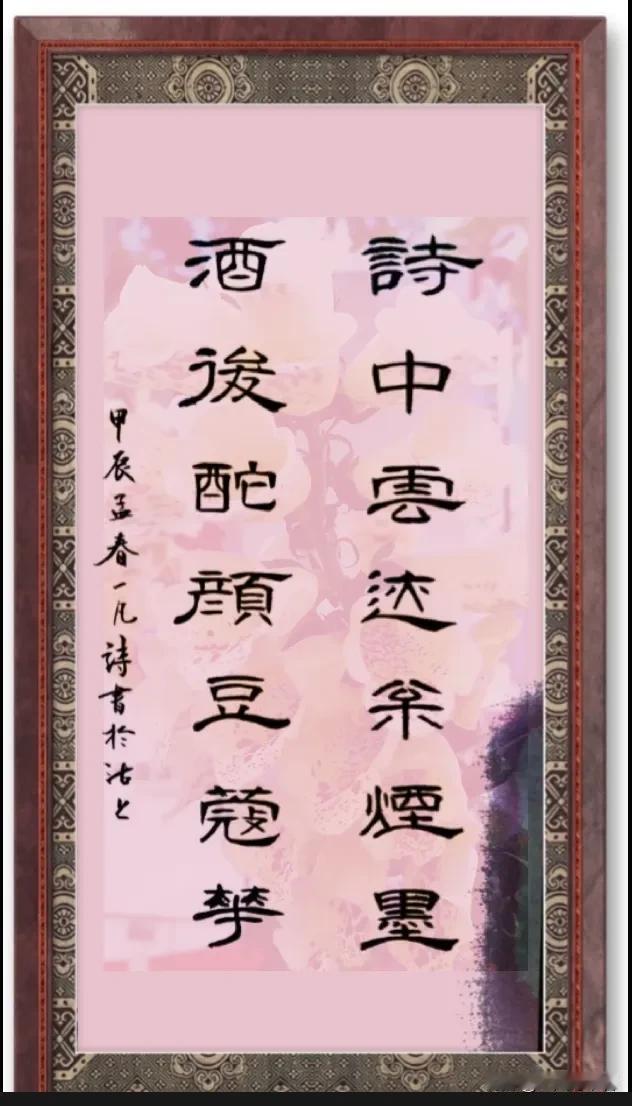 詩中雲煙墨
酒後酡顔豆蔻華
甲辰孟春一凡詩書於沽上